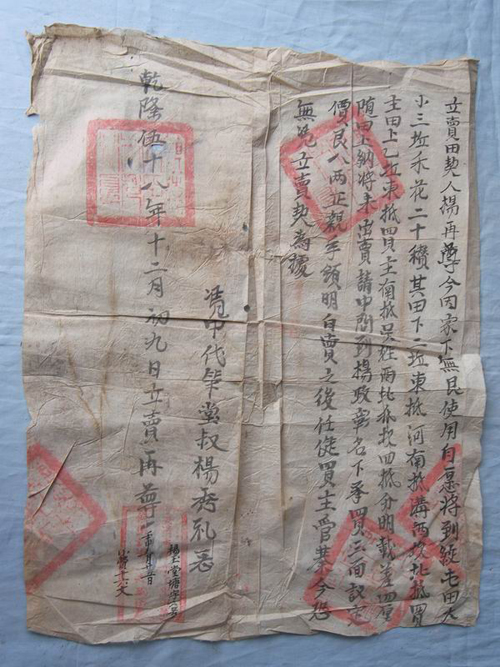 立賣田契人楊再學今因家下無艮使用自愿將到總屯田大
小三坵禾花二十穧其田下二坵東抵河南抵溝西抵北抵買
主田上乙坵東抵買主南抵吳姓西北抵坎四抵分明載差
隨田上納將來出賣請中問到楊政彰名下承買三面議定
價艮八两正親手領明自賣之後任從買主管業今恐
無凴立賣契為據
凴中代筆堂叔楊秀礼
乾隆伍十八年十二月初九日立賣